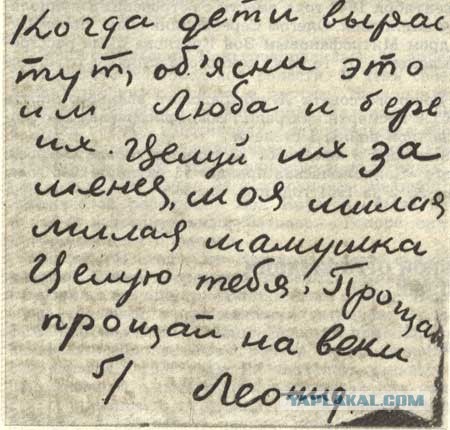 Когда дети вырас
тут, об'ясни это
им Люба и бере
их. Целуй их за
меня, моя милая
милая мамушка
Целую тебя. Прощай
прощай на веки
5/ Леонид.
YAPLAKAL.COM